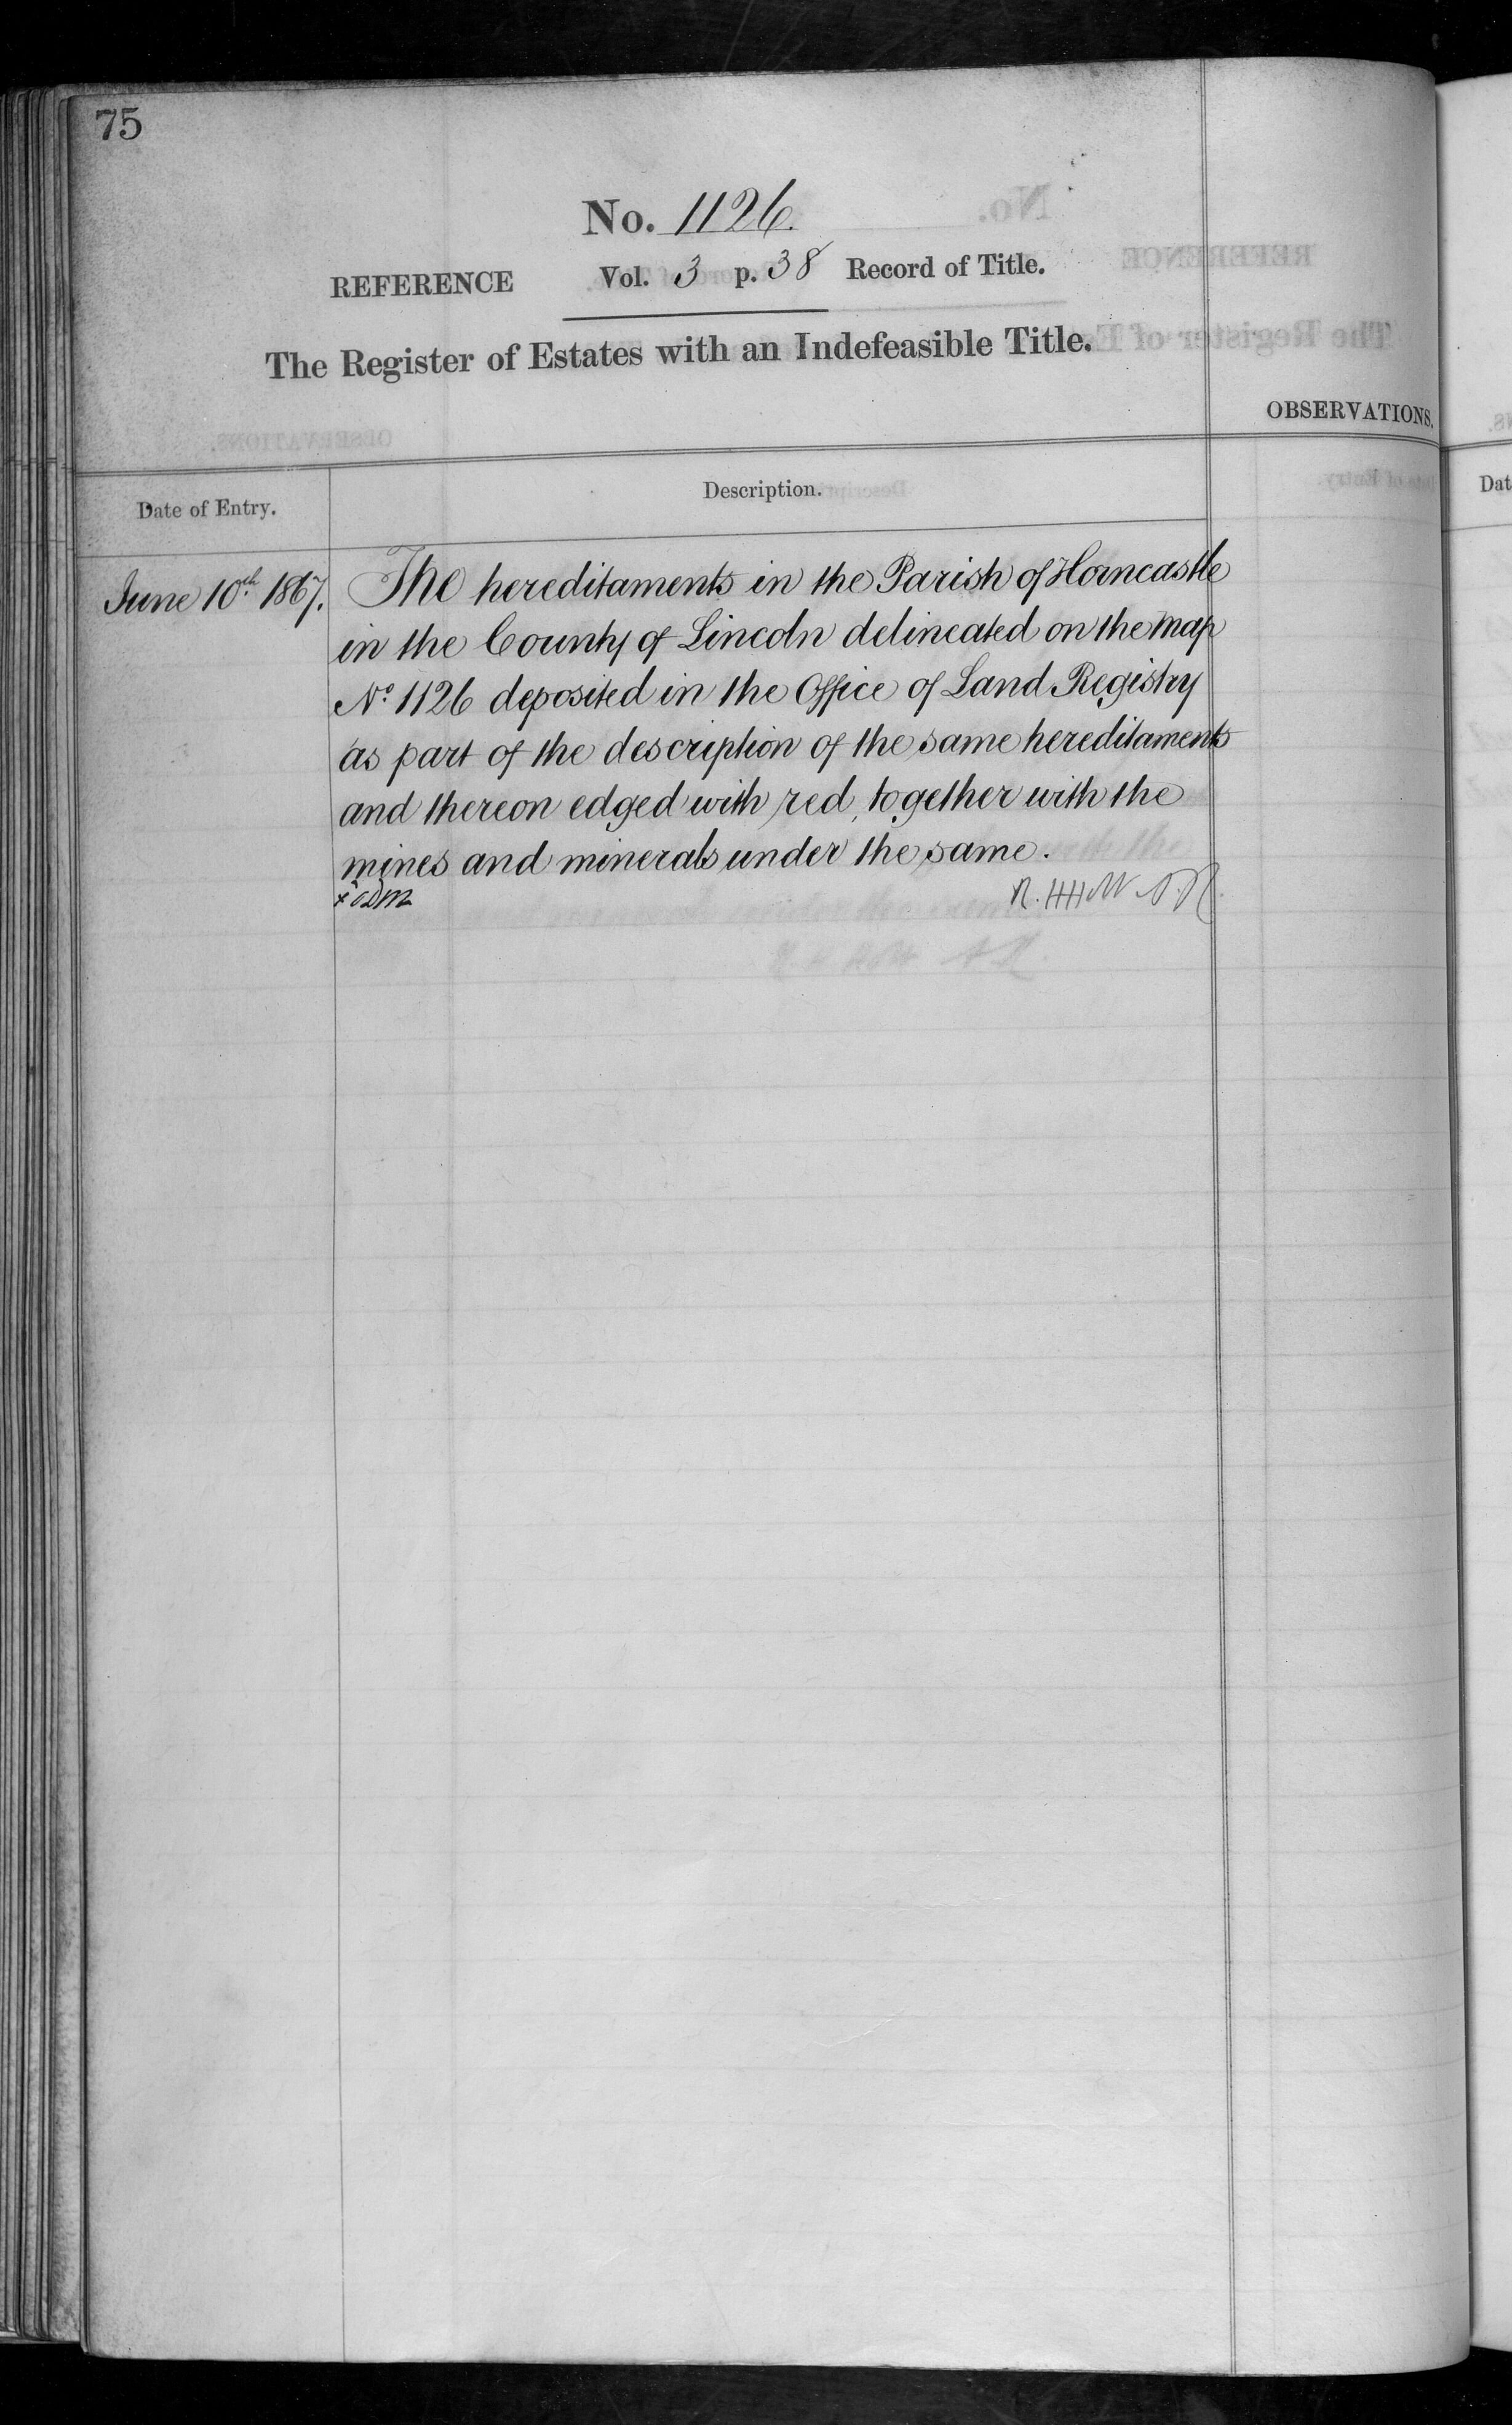 75
No. 1126.
REFERENCE Vol. 3 p. 38 Record of Title.
The Register of Estates with an Indefeasible Title.
OBSERVATIONS.
Date of Entry.
Description.
June 10th 1867.
The hereditaments in the Parish of Horncastle
in the County of Lincoln delineated on the Map
No. 1126 deposited in the Office of Land Registry
as part of the description of the same hereditaments
and thereon edged with red, together with the
mines and minerals under the same.
Dat